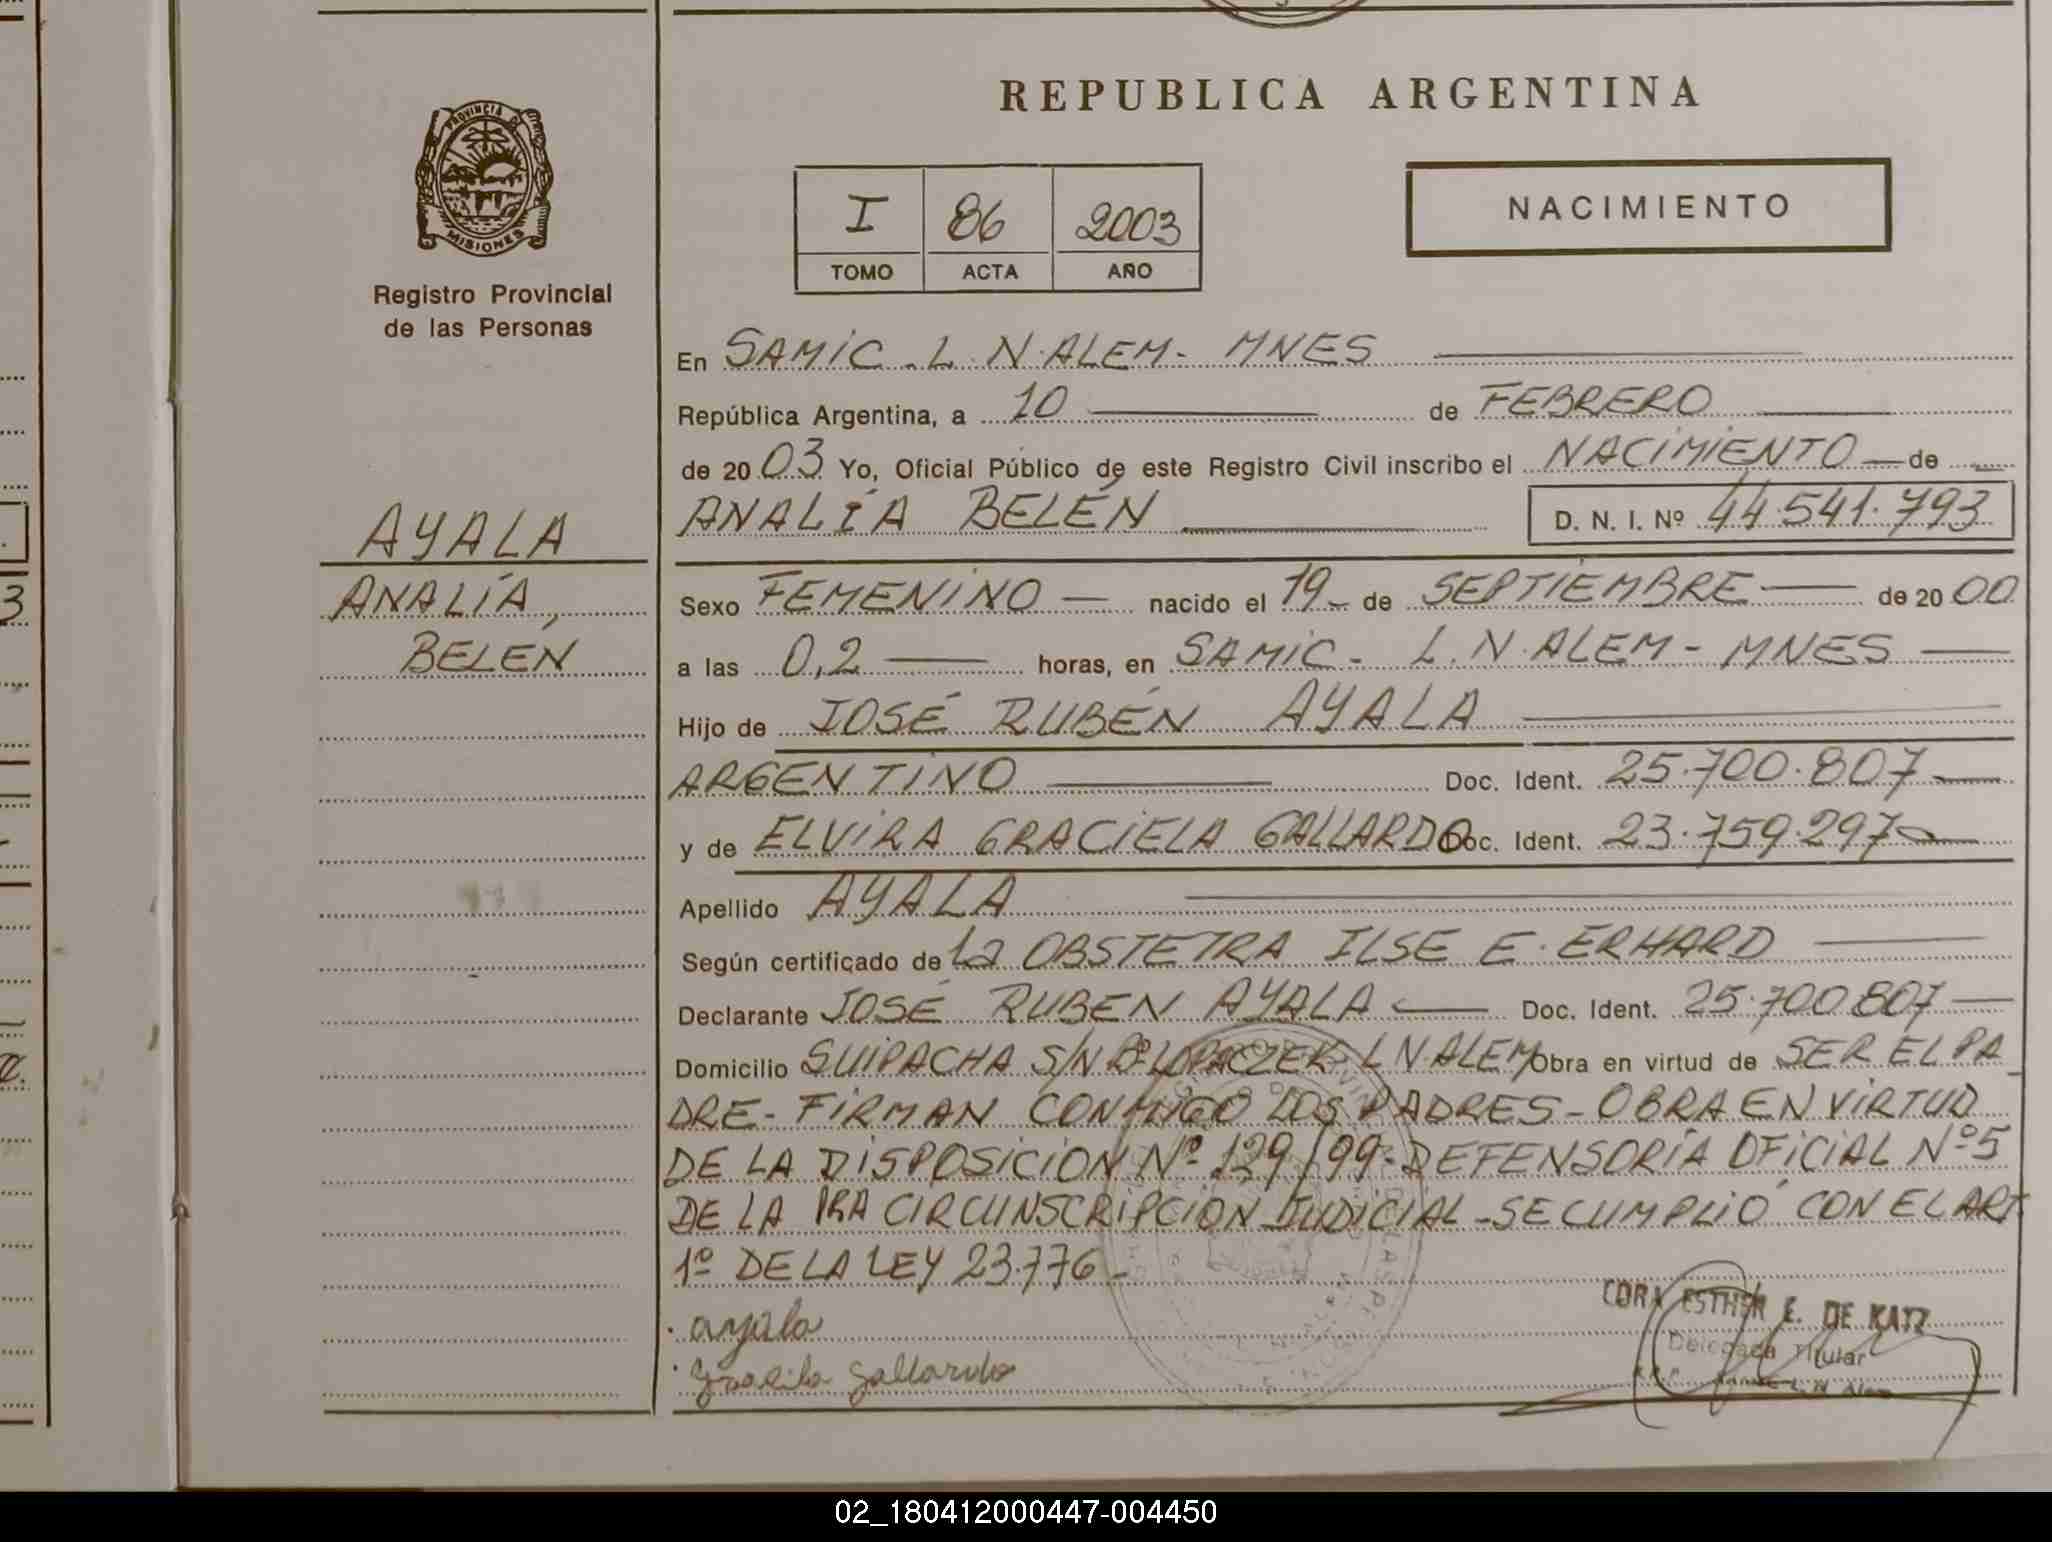 REPUBLICA ARGENTINA
PROVINCIA DE
MISIONES
Registro Provincial
de las Personas
I 86 2003
TOMO ACTA AÑO
NACIMIENTO
En SAMIC - L. N. ALEM - MNES
República Argentina, a 10 de FEBRERO
de 2003 Yo, Oficial Público de este Registro Civil inscribo el NACIMIENTO de
ANALÍA BELÉN D. N. I. Nº 44.541.793
AYALA
ANALÍA,
BELÉN
Sexo FEMENINO nacido el 19 de SEPTIEMBRE de 2000
a las 0,2 horas, en SAMIC - L. N. ALEM - MNES
Hijo de JOSÉ RUBÉN AYALA
ARGENTINO Doc. Ident. 25.700.807
y de ELVIRA GRACIELA GALLARDO Doc. Ident. 23.759.297
Apellido AYALA
Según certificado de la OBSTETRA ILSE E. ERHARD
Declarante JOSÉ RUBEN AYALA Doc. Ident. 25.700.807
Domicilio SUIPACHA S/N Bº LOPACZEK L N ALEM Obra en virtud de SER EL PA
DRE - FIRMAN CONMIGO LOS PADRES - OBRA EN VIRTUD
DE LA DISPOSICION Nº 129/99 - DEFENSORÍA OFICIAL Nº 5
DE LA 1RA CIRCUNSCRIPCION JUDICIAL - SE CUMPLIÓ CON EL ART
1º DE LA LEY 23.776 -
ayala
Graciela Gallardo
CORA ESTHER E. DE KATZ
Delegada Titular
L. N. Alem
02_180412000447-004450